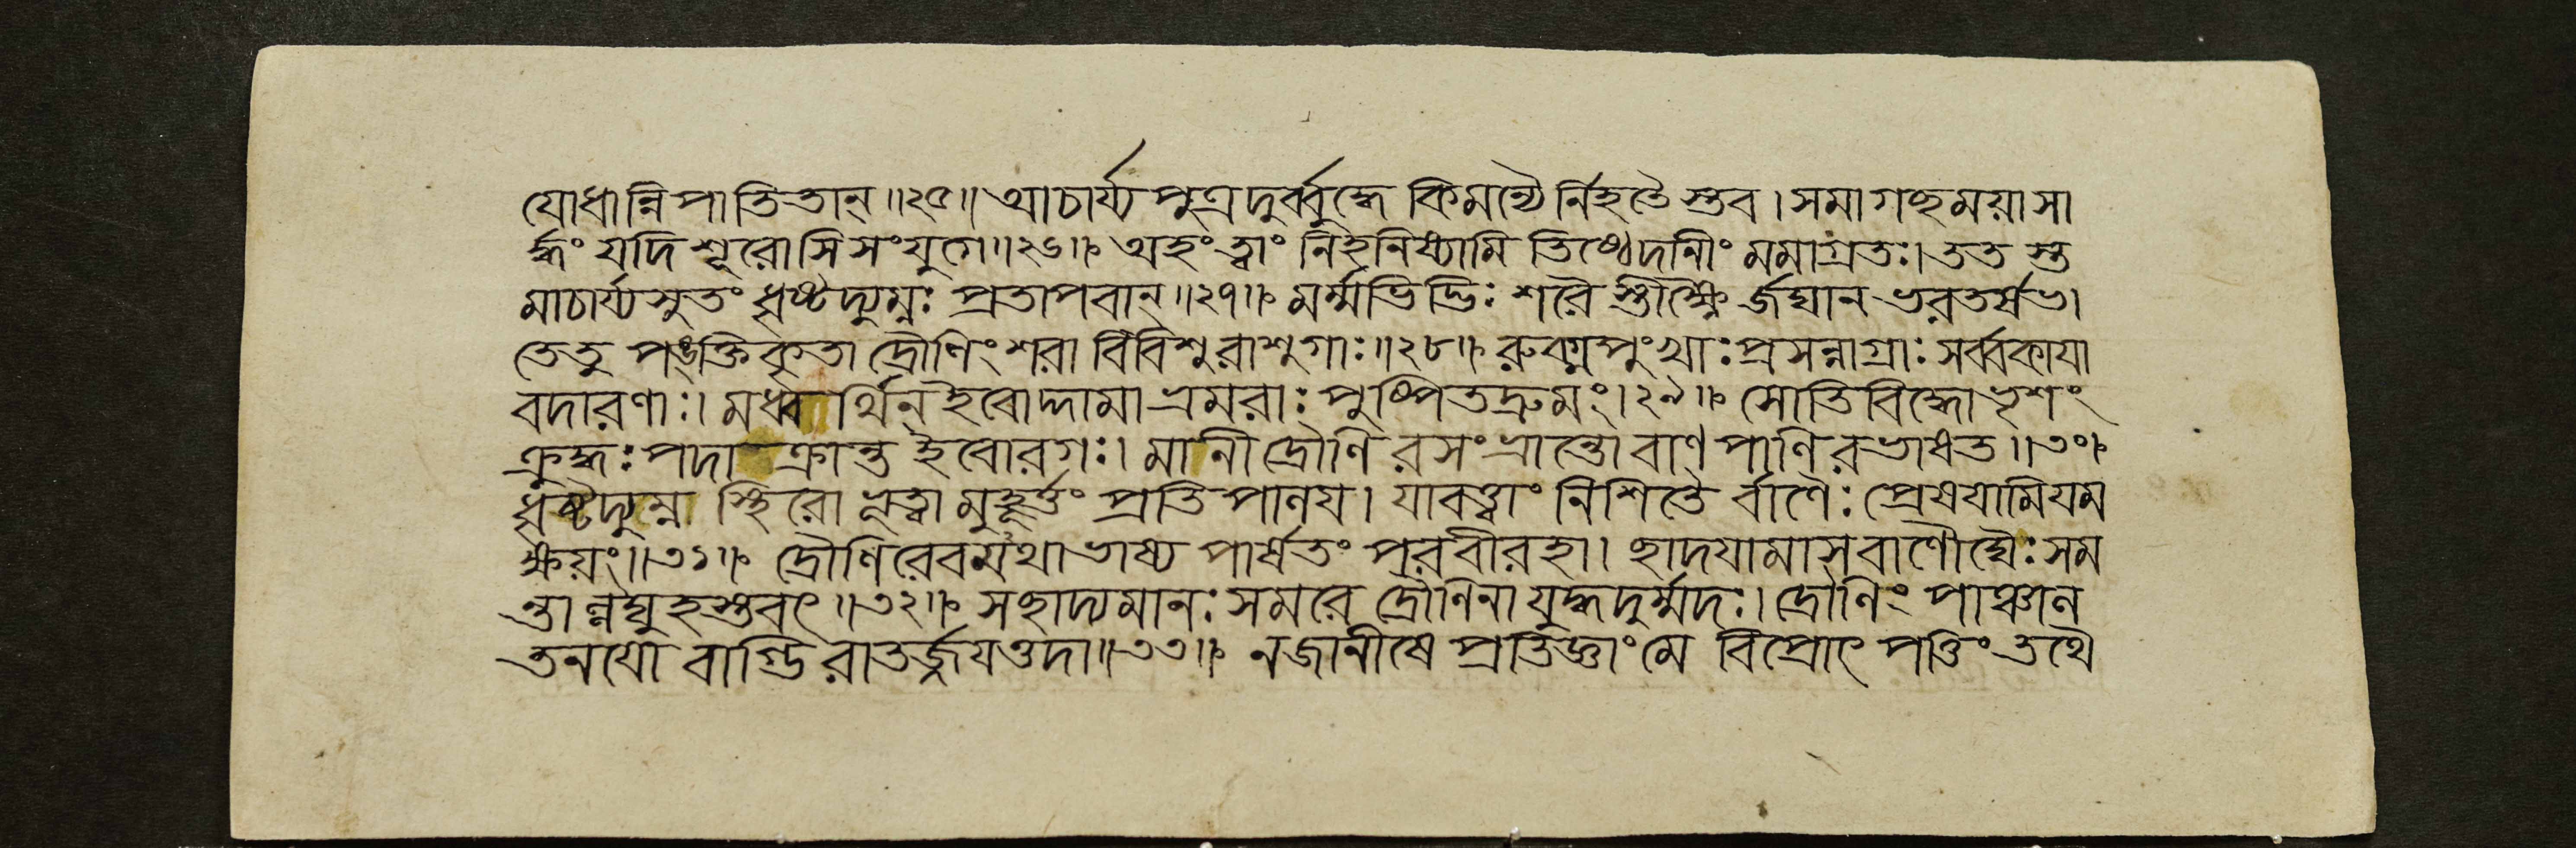 যোধান্নিপাতিতান্॥২৫॥আচার্য্যপুত্রদুর্ব্বুদ্ধে কিমন্যৈর্নিহতৈ স্তব।সমাগচ্ছময়াসা
র্দ্ধং যদি শূরোসিসংযুগে॥২৬॥ অহং ত্বাং নিহনিষ্যামি তিষ্ঠেদনীং মমাগ্রতঃ।তত স্ত
মাচার্য্যসুতং ধৃষ্টদ্যুম্নঃ প্রতাপবান্॥২৭॥ মর্ম্মভিদ্ভিঃ শরৈ স্তীক্ষ্ণৈ র্জঘান ভরতর্ষভ।
তেতু পঙ্ক্তিকৃতা দ্রৌণিংশরা বিবিশুরাশুগাঃ॥২৮॥ রুক্মপুংখাঃপ্রসন্নাগ্রাঃ সর্ব্বকায়া
বদারণাঃ। মধ্বর্থিন ইবোদ্দামা ভ্রমরাঃ পুষ্পিতদ্রুমং।২৯॥ সোতিবিদ্ধোভৃশং
ক্রুদ্ধঃ পদা ক্রান্ত ইবোরগঃ। মানীদ্রৌণি রসংভ্রান্তোবাণপাণি রভাষত॥৩০॥
ধৃষ্টদ্যুম্ন স্থিরো ভূত্বা মুহূর্ত্তং প্রতিপালয়। যাবত্ত্বাং নিশিতৈ র্বাণৈঃ প্রেষয়ামিযম
ক্ষয়ং॥৩১॥ দ্রৌণিরেবমথাভাষ্য পার্ষতং পরবীরহা। ছাদয়ামাসবাণৌঘৈঃ সম
ন্তাল্লঘুহস্তবৎ॥৩২॥ সছাদ্যমানঃ সমরে দ্রৌণিনা যুদ্ধদুর্ম্মদঃ। দ্রৌণিং পাঞ্চাল
তনয়ো বাগ্ভি রাতর্জ্জয়ত্তদা॥৩৩॥ নজানীষে প্রতিজ্ঞাং মে বিপ্রোৎপত্তিং তথৈ